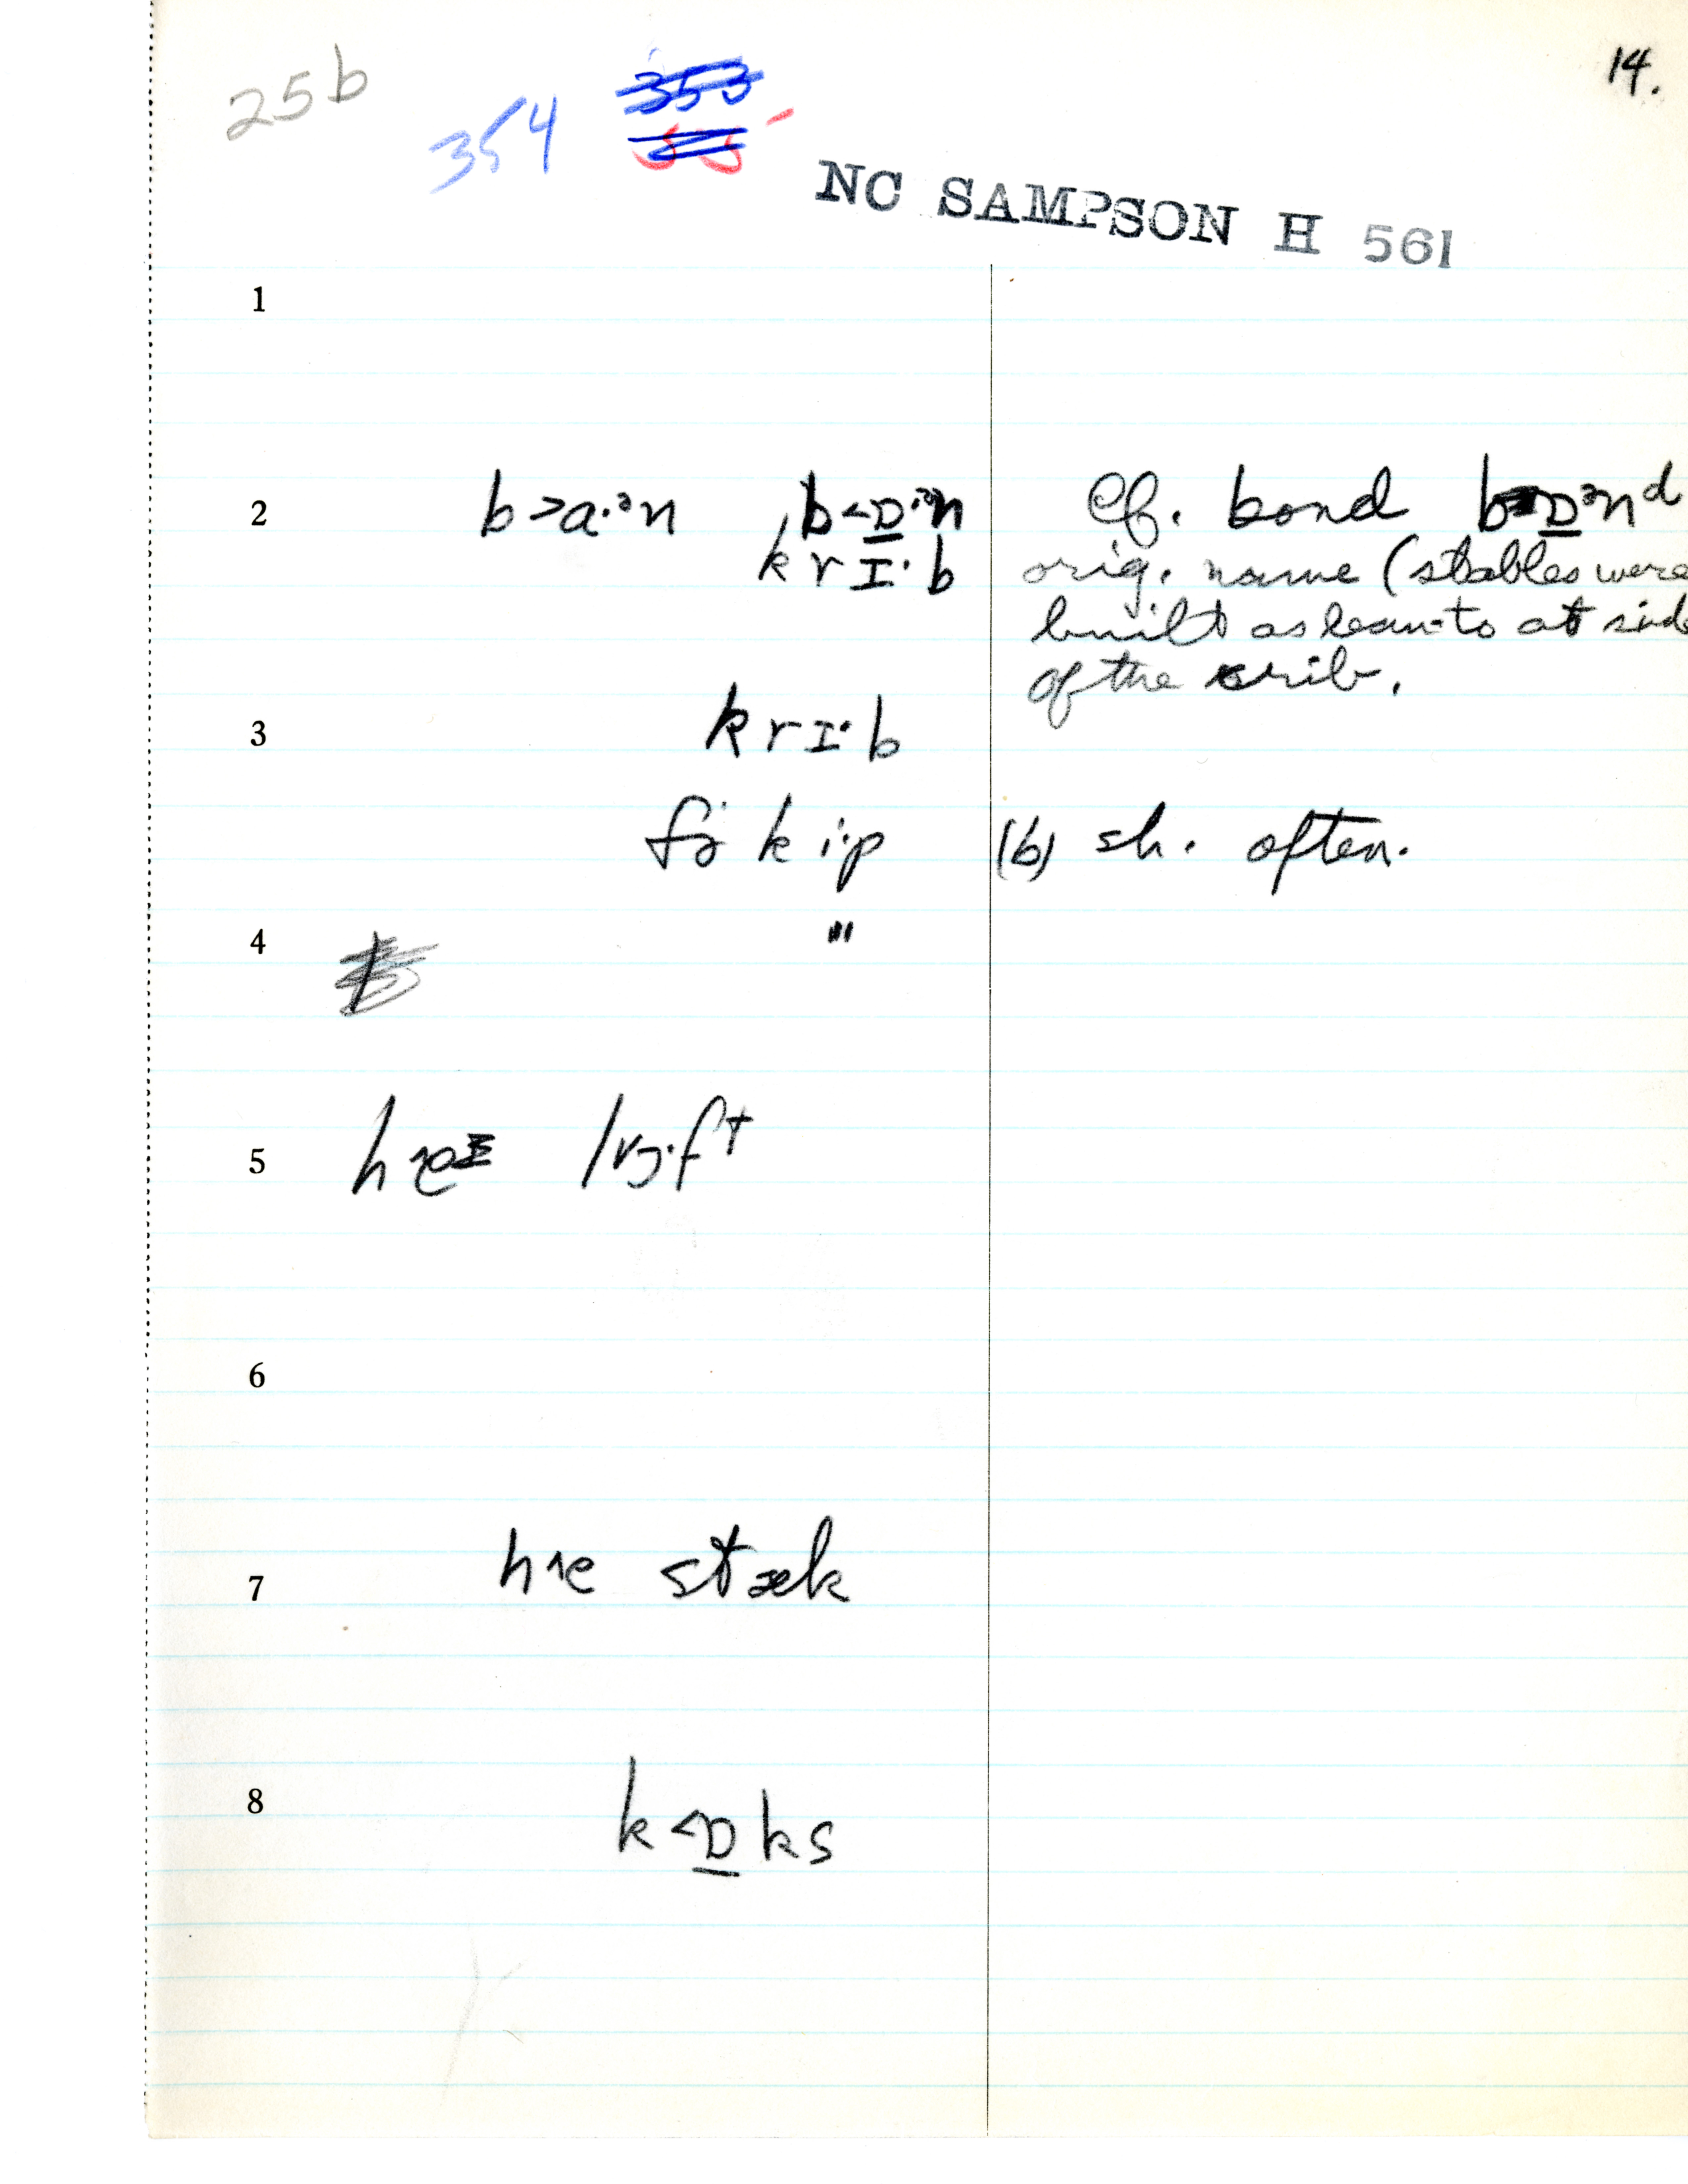 14.
25b
354 353
NC SAMPSON H 561
1
2 b>a·ᵊn b<ɒ̲·ᵊn cf. bond bɒ̲ᵊnᵈ
k r ɪ· b orig. name (stables were
built as lean-to at side
of the crib.
3 k r ɪ· b
k i·p (b) sh. often.
4 "
5
6
7 h^e stæk
8 k<ɒ̲ks